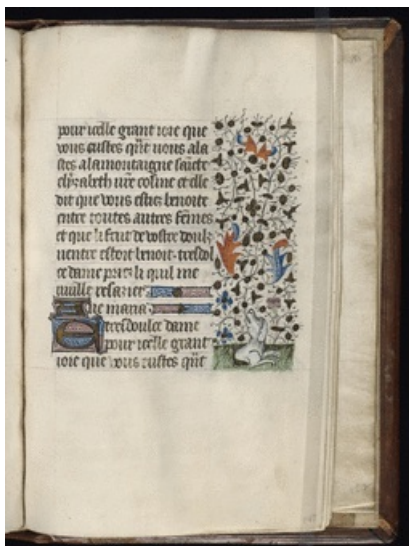 pour icelle grant ioie que
vous eustes qñt vous ala
stes a lamontaigne saincte
elyzabeth vr̃e cosine et elle
dit que vous estiez benoite
entre toutes autres fẽmes
et que le fruit de vostre doulz
ventre estoit benoit. tresdoul
ce dame priez li quil me
vueille resazier
Aue maria.
E tresdoulce dame
pour icelle grant
ioie que vous eustes qñt